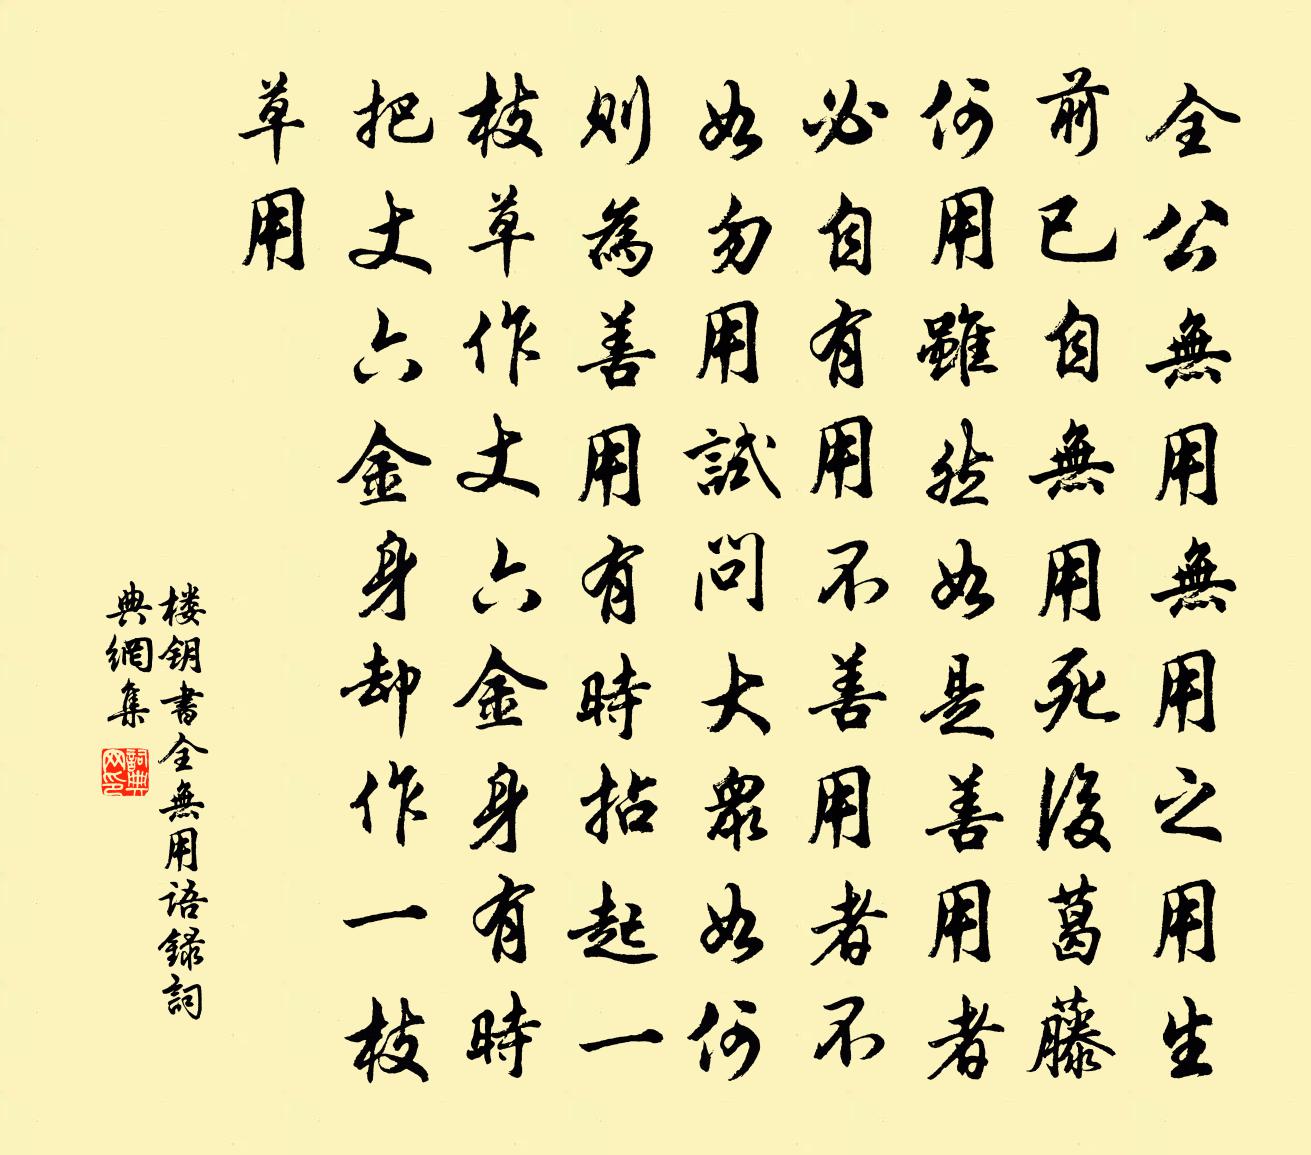 全公無用無用之用生
前已自無用死後葛藤
何用雖然如是善用者
必自有用不善用者不
如勿用試問大眾如何
則為善用有時拈起一
枝草作丈六金身有時
把丈六金身却作一枝
草用
楼钥書全無用語録詞
典網集
詞典
网印